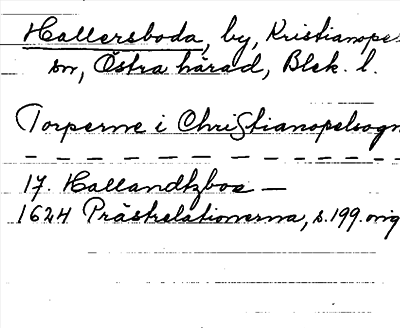 Hallersboda, by, Kristianopels
sn, Östra härad, Blek. l.
Torperne i Christianopelsogn
— — — — — — — — — —
17. Hallandtzboe —
1624 Prästrelationerna, s. 199. orig